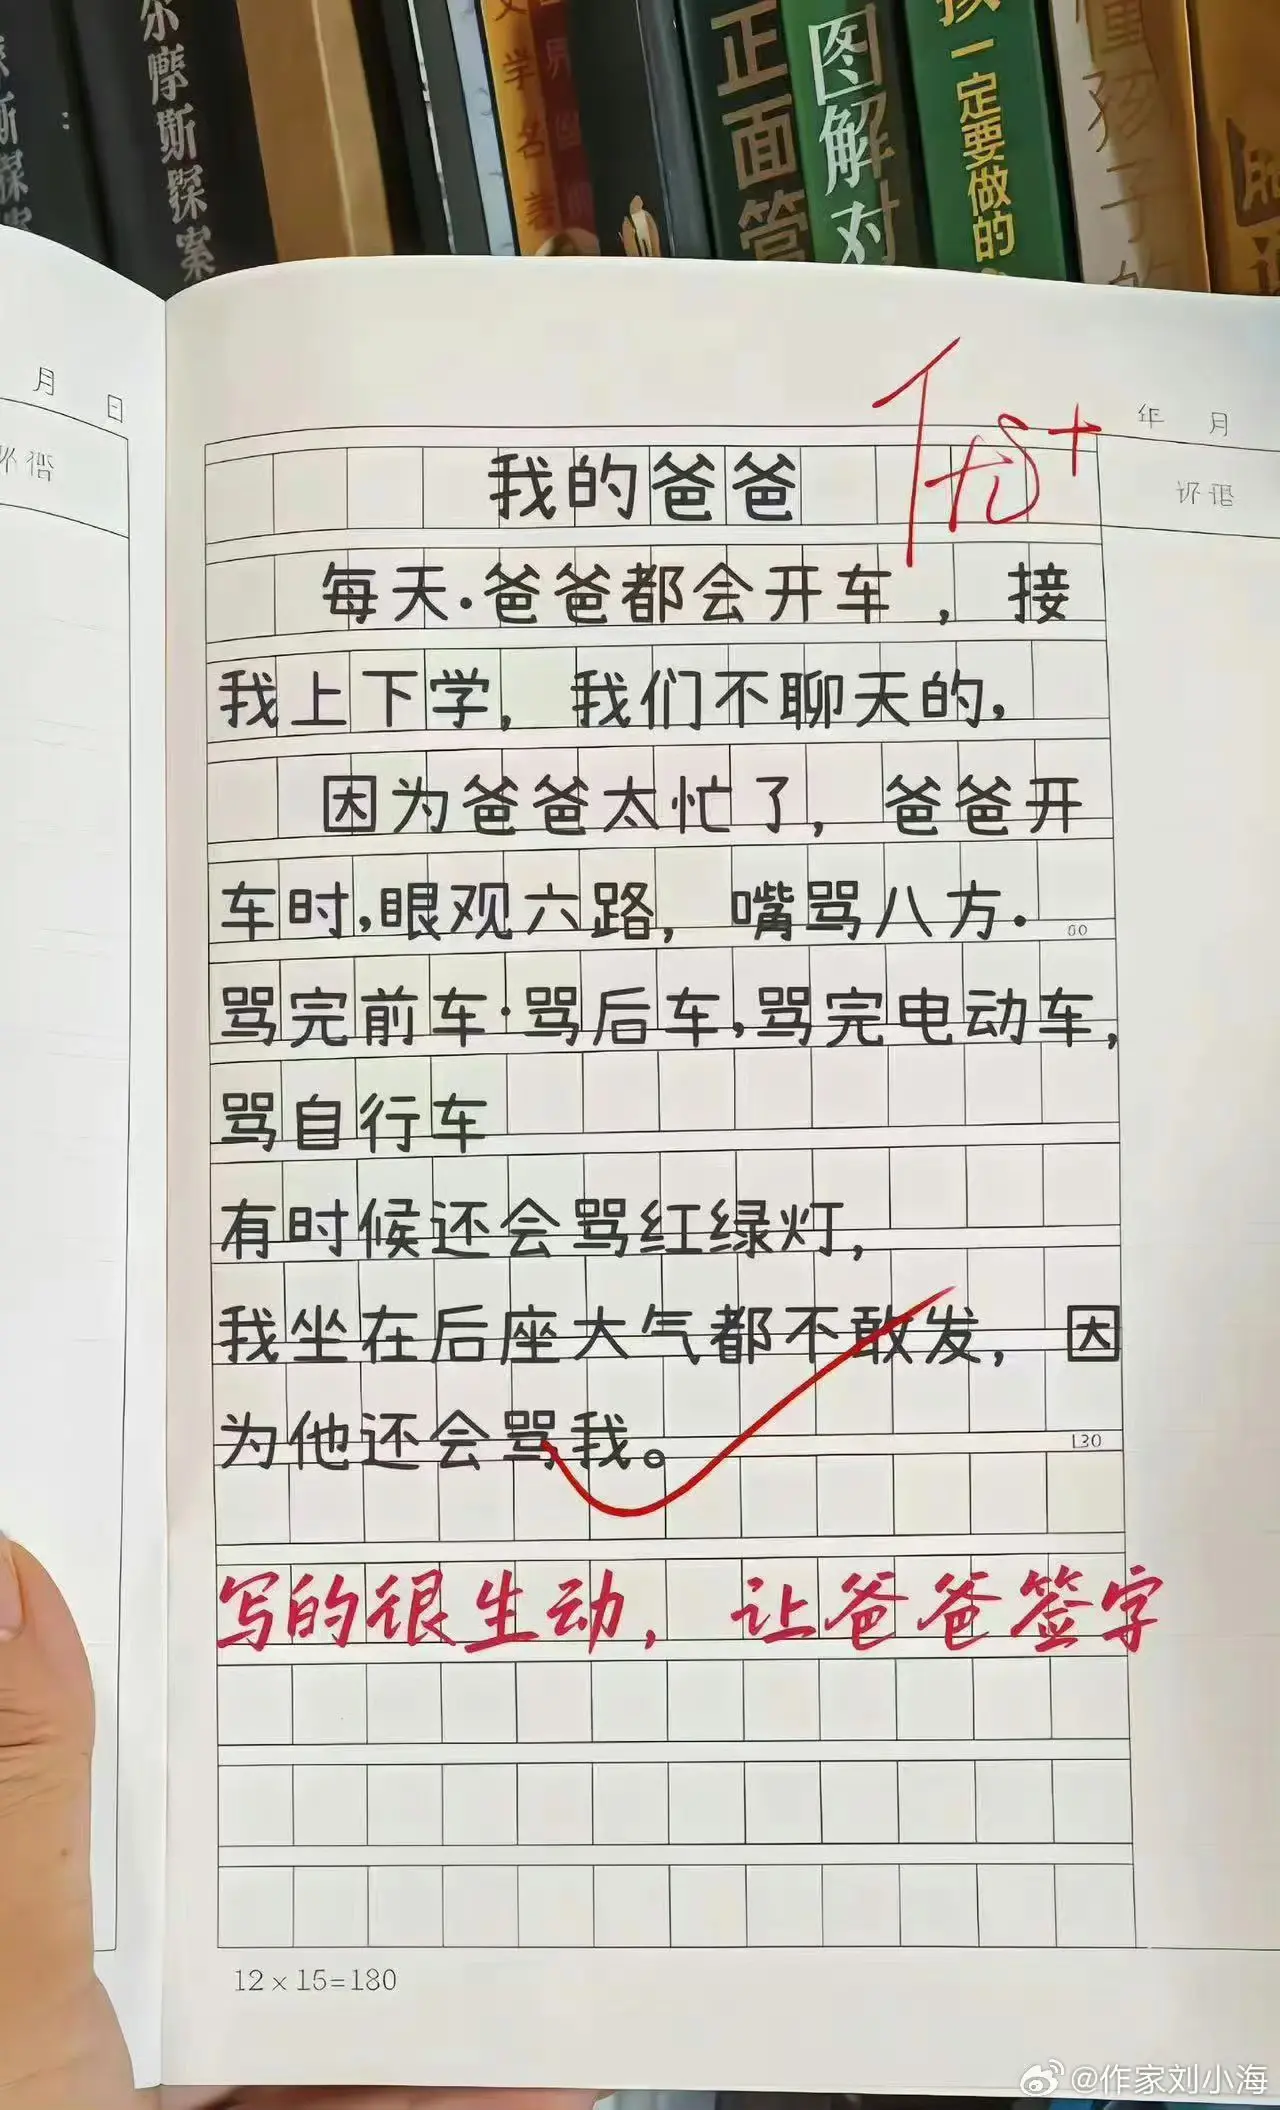 尔摩斯探案
斯探案
文学名著
正面管
图解对
孩一定要做的
懂孩子的
月 日
年 月
我的爸爸
优+
每天·爸爸都会开车，接
我上下学，我们不聊天的，
因为爸爸太忙了，爸爸开
车时，眼观六路，嘴骂八方·
60
骂完前车·骂后车，骂完电动车，
骂自行车
有时候还会骂红绿灯，
我坐在后座大气都不敢发，因
为他还会骂我。
130
写的很生动，让爸爸签字
12×15=180
@作家刘小海